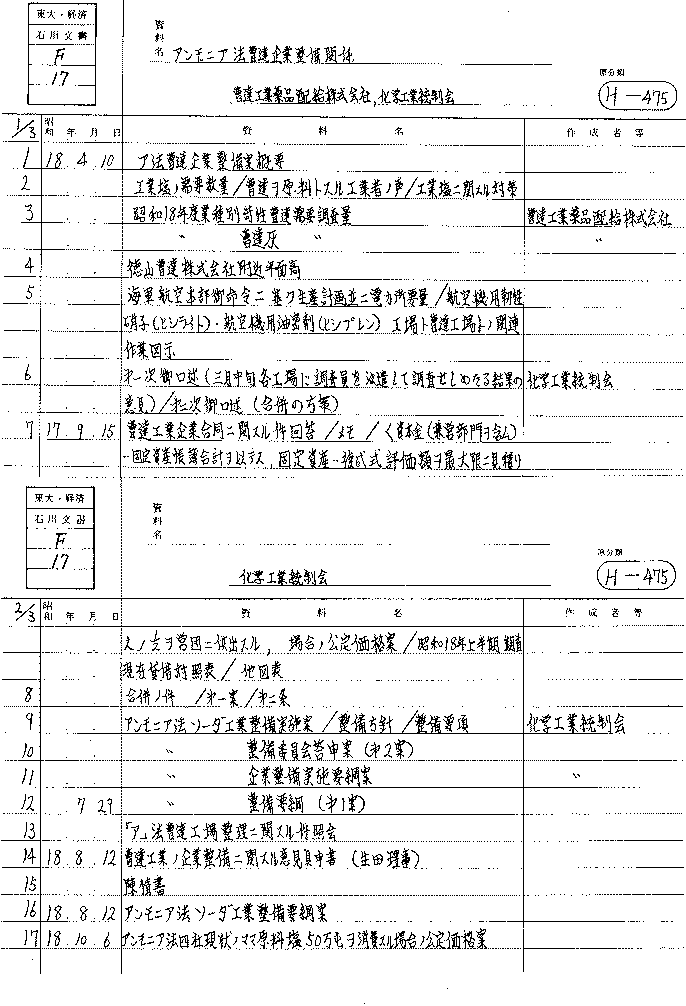 東大・経済
石川文書
F
17
資料名
アンモニア法曹達企業整備関係
曹達工業薬品配給株式会社,化学工業統制会
原分類
H-475
1/3 昭和 年 月 日 資料名 作成者等
1 18 4 10 ア法曹達企業整備案概要
2 工業塩ノ需要数量/曹達ヲ原料トスル工業者ノ声/工業塩ニ関スル対策
3 昭和18年度業種別苛性曹達需要調査量 曹達工業薬品配給株式会社
〃 曹達灰 〃 〃
4 徳山曹達株式会社附近平面図
5 海軍航空本部御命令ニ基ク生産計画並ニ電力所要量/航空機用靭性
硝子(ヒシライト)・航空機用油密剤(ヒシプレン)工場ト曹達工場トノ関連
作業図示
6 第一次御口述(三月中旬各工場に調査員を派遣して調査せしめたる結果の 化学工業統制会
意見)/第二次御口述(合併の方策)
7 17 9 15 曹達工業企業合同ニ関スル件回答/メモ/〈資本金(兼営部門ヲ含ム)
固定資産帳簿合計ヲ以テス,固定資産 複成式評価額ヲ最大限ニ見積リ
東大・経済
石川文書
F
17
資料名
化学工業統制会
原分類
H-475
2/3 昭和 年 月 日 資料名 作成者等
之ノ1/2ヲ営団ニ供出スル,場合ノ公定価格案/昭和18年上半期調査
現在貸借対照表/他図表
8 合併ノ件 /第一案/第二条
9 アンモニア法ソーダ工業整備実施案/整備方針/整備要項 化学工業統制会
10 〃 整備委員会答申案(第2案)
11 〃 企業整備実施要綱案 〃
12 7 29 〃 整備要綱(第1案)
13 「ア」法曹達工場整理ニ関スル件照会
14 18 8 12 曹達工業ノ企業整備ニ関スル意見具申書(生田理事)
15 陳情書
16 18 8 12 アンモニア法ソーダ工業整備要綱案
17 18 10 6 アンモニア法四社現状ノママ原料塩50万屯ヲ消費スル場合ノ公定価格案